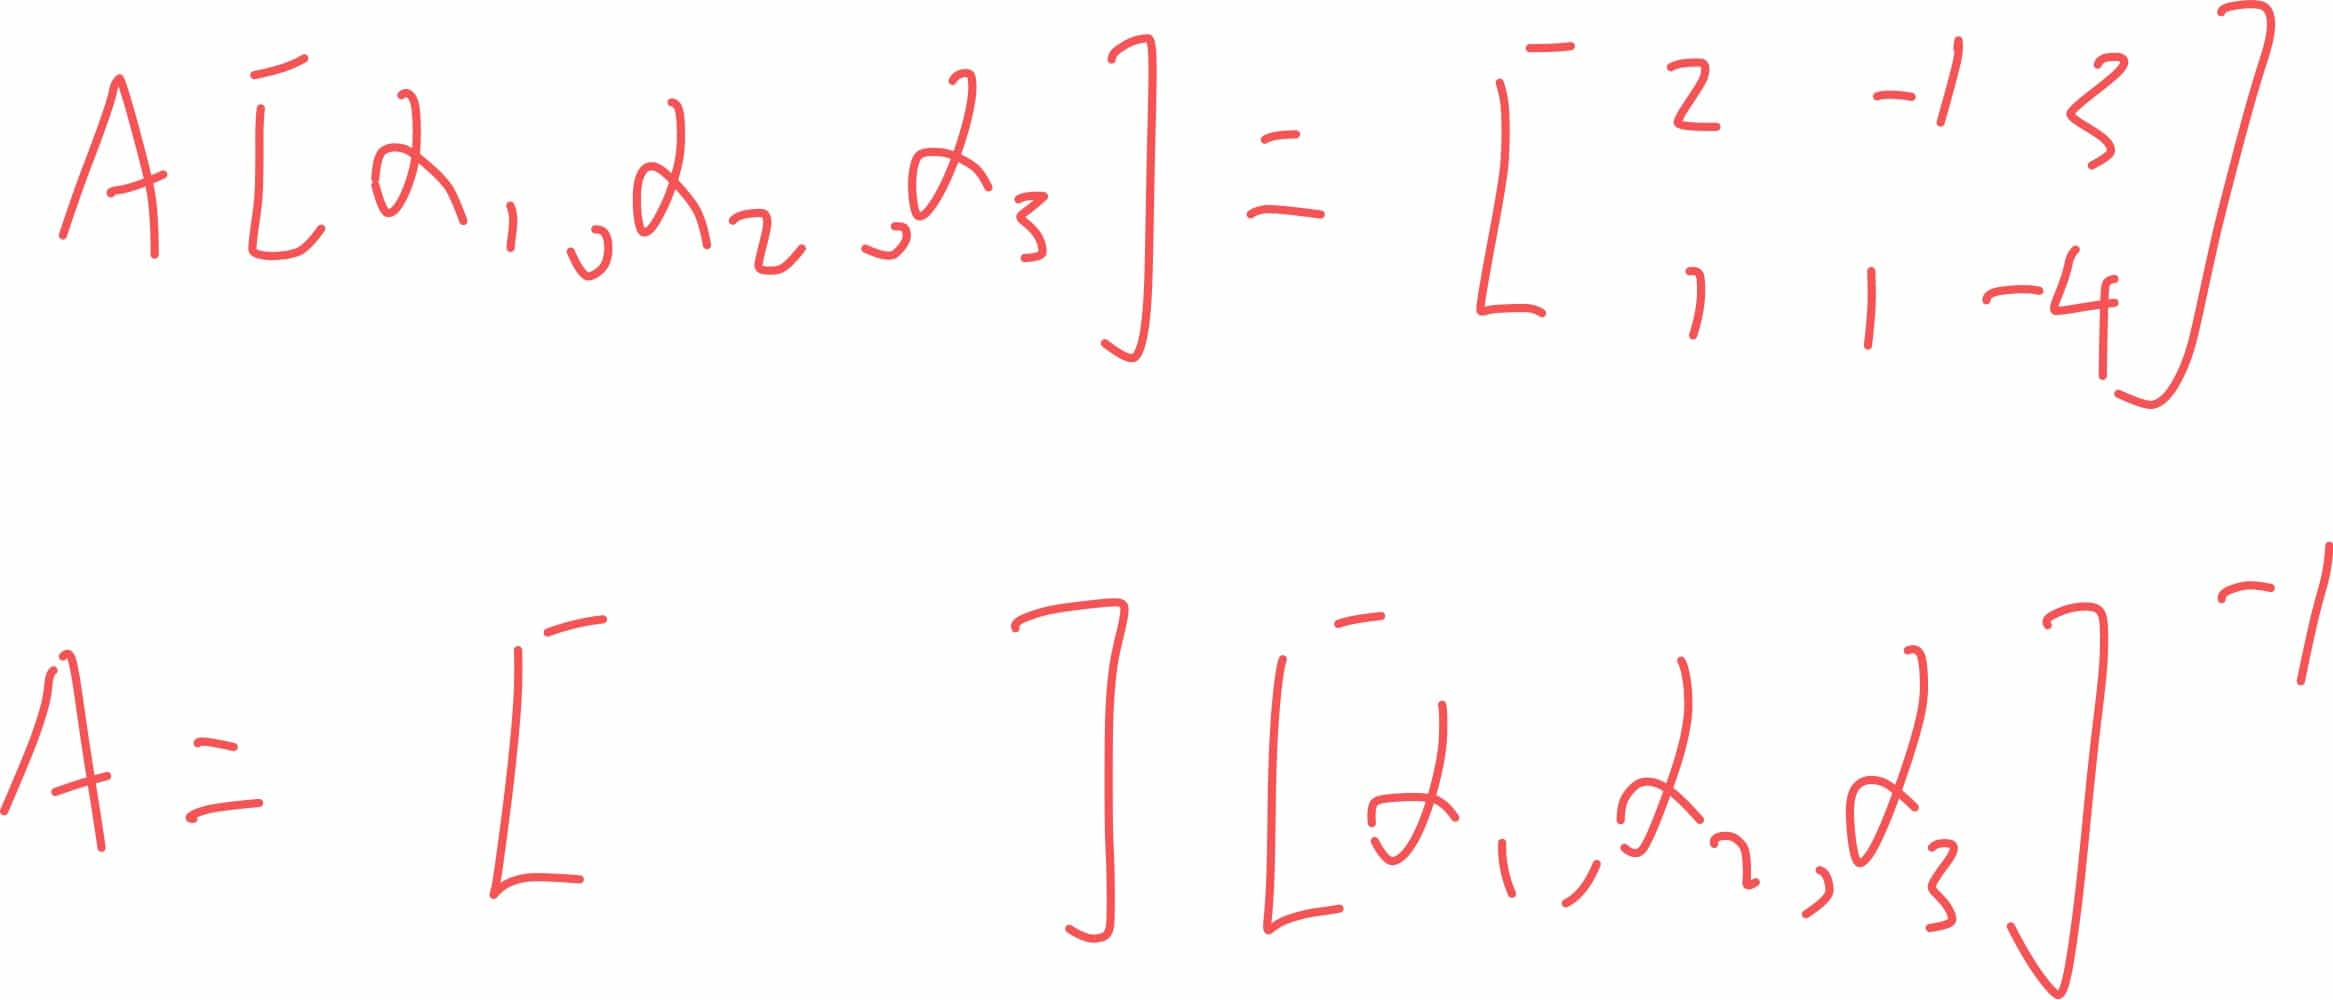 A[α₁, α₂, α₃] = [2 -1 3
1 1 -4]
A = [ ] [α₁, α₂, α₃]⁻¹